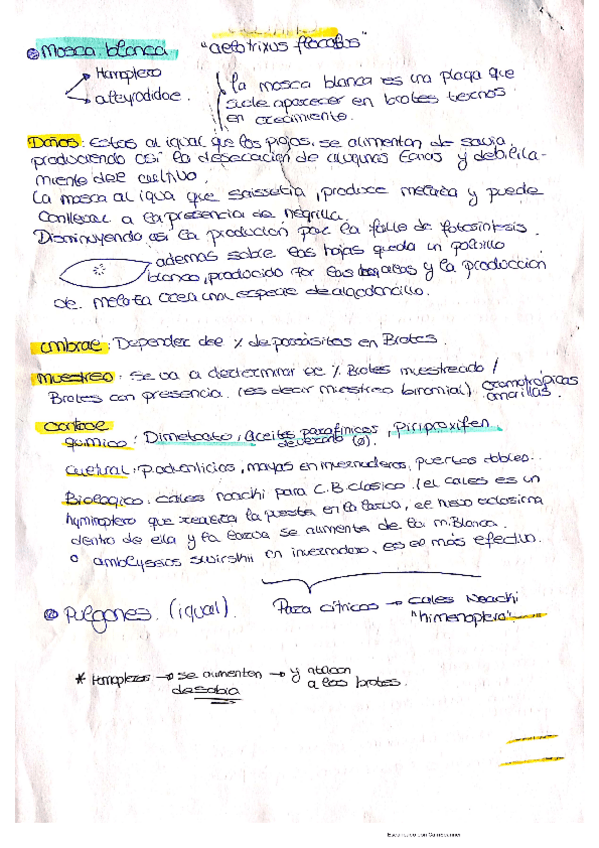 Mosca blanca "aelotrixus flocolos"
Homoptero
alteyrodidoe.
la mosca blanca es una plaga que
suele aparecer en brotes tiernos
en crecimiento.
Daños: Estos al igual que los piojos, se alimentan de savia,
produciendo asi la desecación de algunas zonas y debilita-
miento del cultivo.
La mosca al igual que saissetia, produce melaza y puede
conllevar a la presencia de negrilla.
Disminuyendo asi la producion por la falta de fotosintesis.
ademas sobre las hojas queda un polvillo
blanco, producido por las y la produccion
de melaza crea una especie de algodoncillo.
umbral: Depender del % de parásitos en Brotes.
muestreo: Se va a determinar el % Brotes muestreado /
Brotes con presencia. (es decir muestreo binomial) cromotrópicas
amarillas.
control
químico: Dimetoato, aceites parafinicos, Piriproxifen
de verano
cultural: plasticos, mayas en invernaderos, puertas dobles.
Biologico: cales noacki para C.B. clasico. (el cales es un
hyminoptero que realiza la puesta en la larva, el huevo eclosiona
dentro de ella y la larva se alimenta de la m. Blanca.
o amblyseios swirskii en invernadero, es el más efectivo.
Para citricos → cales Noacki
"himenoptero"
Pulgones. (igual).
* Homopteros → se alimentan → y atacan
de sabia a los brotes.
Escaneado con CamScanner